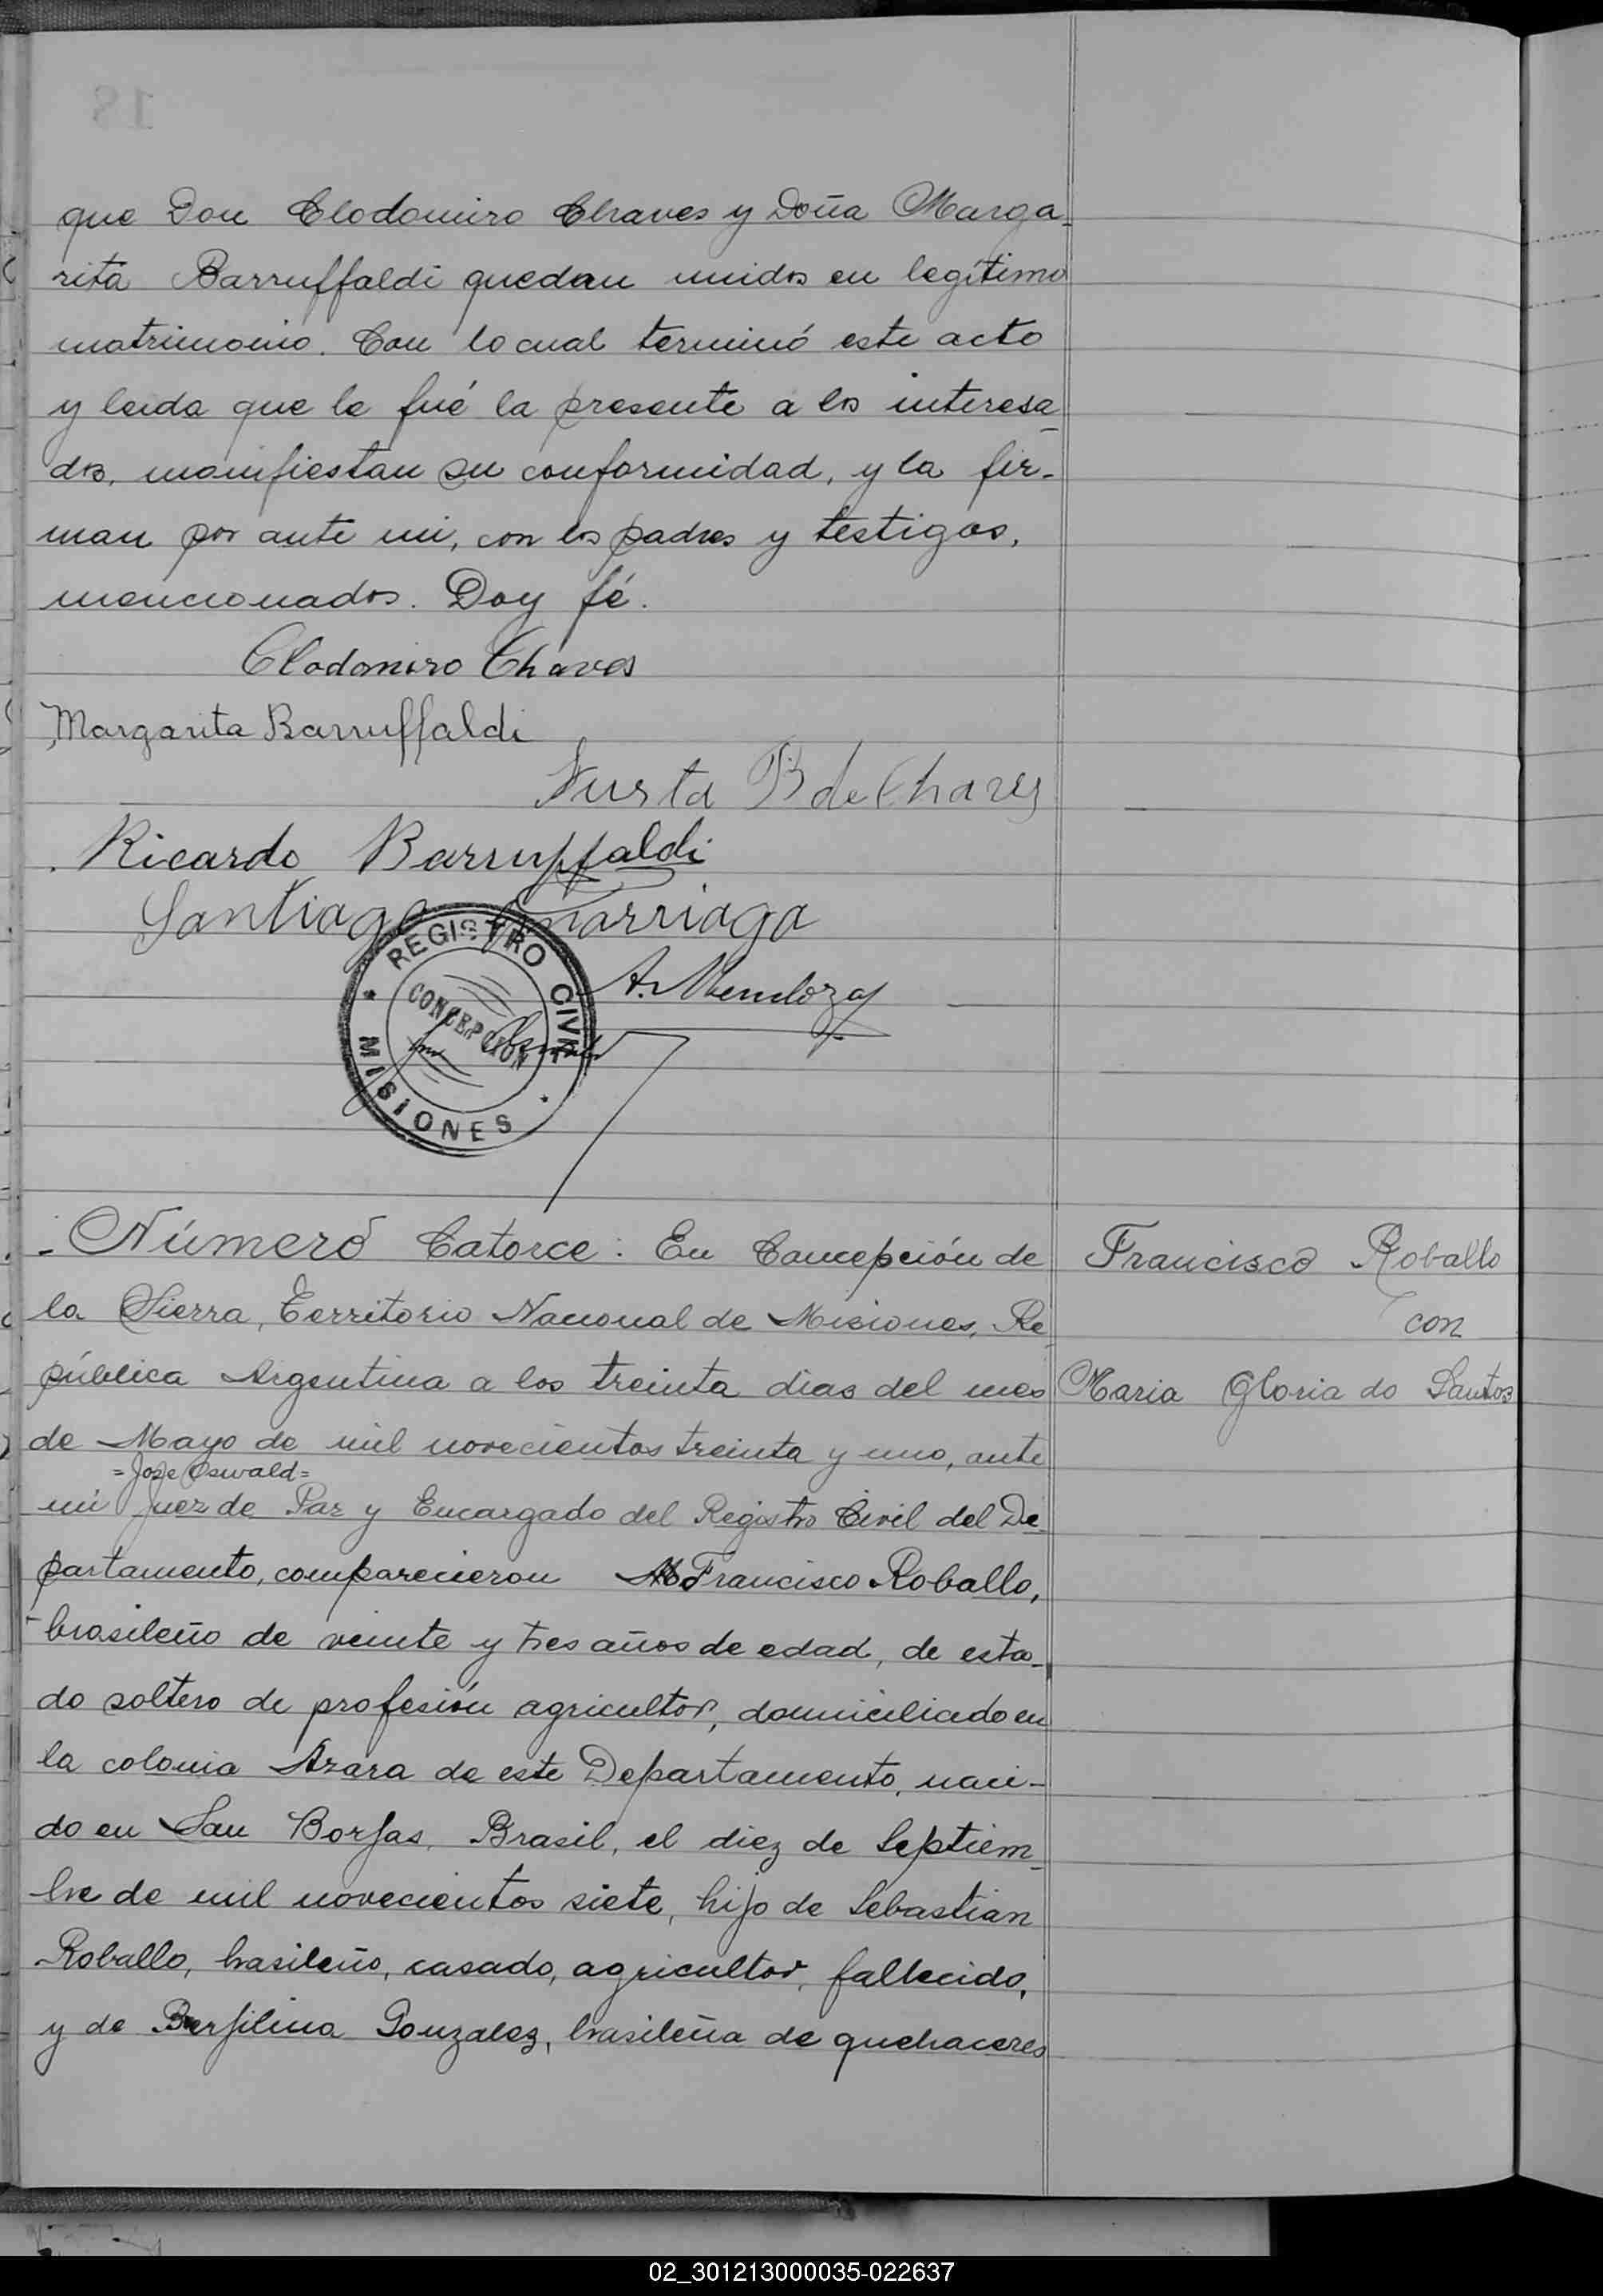 que Don Clodomiro Chaves y Doña Marga-
rita Barruffaldi quedan unidos en legítimo
matrimonio. Con lo cual terminó este acto
y leida que le fué la presente a los interesa-
dos, manifiestan su conformidad, y la fir-
man por ante mi, con los padres y testigos,
mencionados. Doy fé.
Clodomiro Chaves
Margarita Barruffaldi
Justa B de Chaves
Ricardo Barruffaldi
Santiago
A. Mendoza
REGISTRO CIVIL
CONCEPCION
MISIONES
Número Catorce: En Concepción de
la Sierra, Territorio Nacional de Misiones, Re-
pública Argentina a los treinta dias del mes
de Mayo de mil novecientos treinta y uno, ante
=Jose Oswald=
mi Juez de Paz y Encargado del Registro Civil del De-
partamento, comparecieron Francisco Roballo,
brasileño de veinte y tres años de edad, de esta-
do soltero de profesión agricultor, domiciliado en
la colonia Azara de este Departamento, naci-
do en San Borjas, Brasil, el diez de Septiem-
bre de mil novecientos siete, hijo de Sebastian
Roballo, brasileño, casado, agricultor, fallecido,
y de Berfilina Gonzalez, brasileña de quehaceres
Francisco Roballo
con
Maria Gloria do Santos
02_301213000035-022637